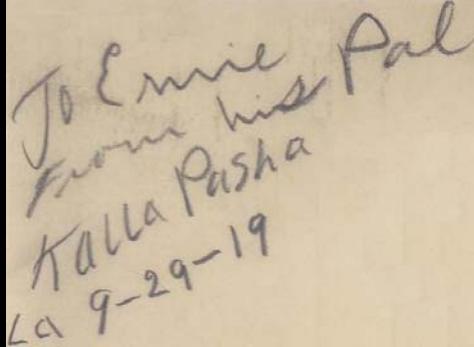 To Ernie
From his Pal
Kalla Pasha
La 9-29-19